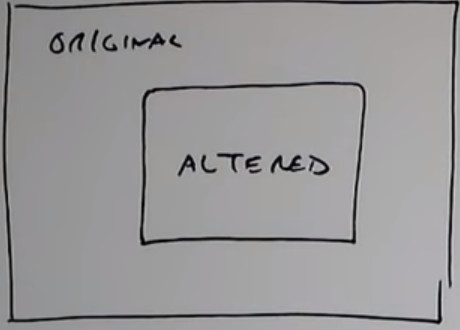 ORIGINAL
ALTERED